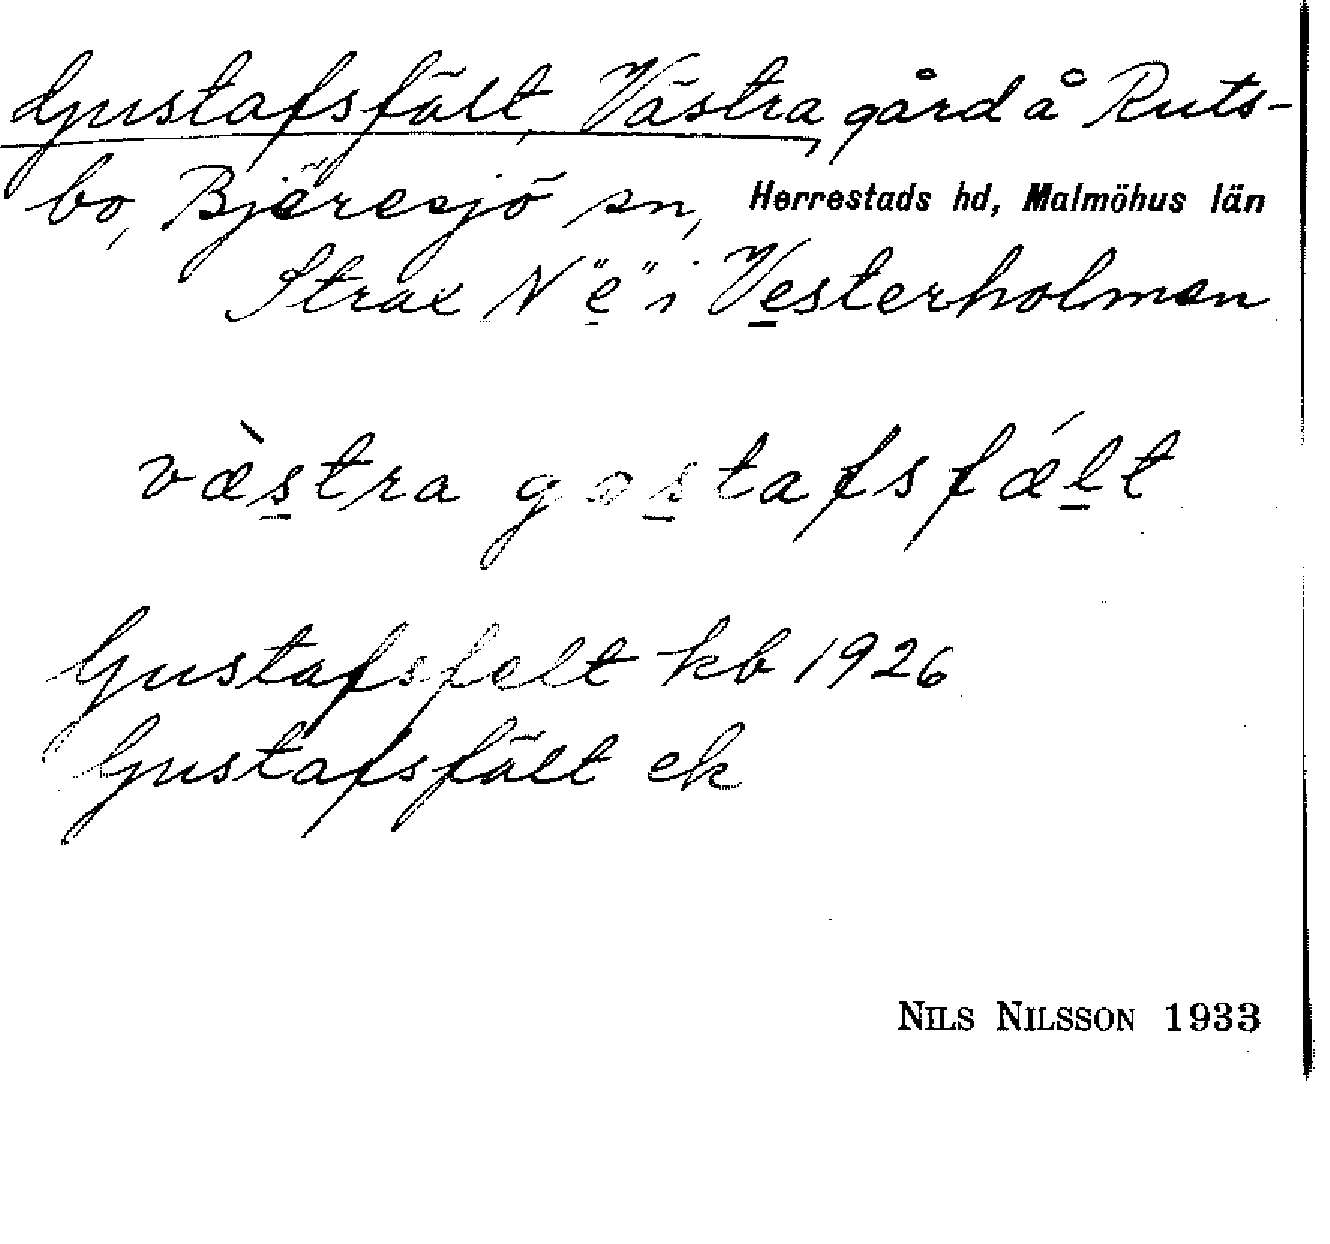 Gustafsfält, Västra, gård å Ruts-
bo, Bjäresjö sn, Herrestads hd, Malmöhus län
Strax N "e" i Vesterholmen
væ̀s̲tra gos̲tafsfǽl̲t
Gustafsfelt kb 1926
Gustafsfält ek
NILS NILSSON 1933